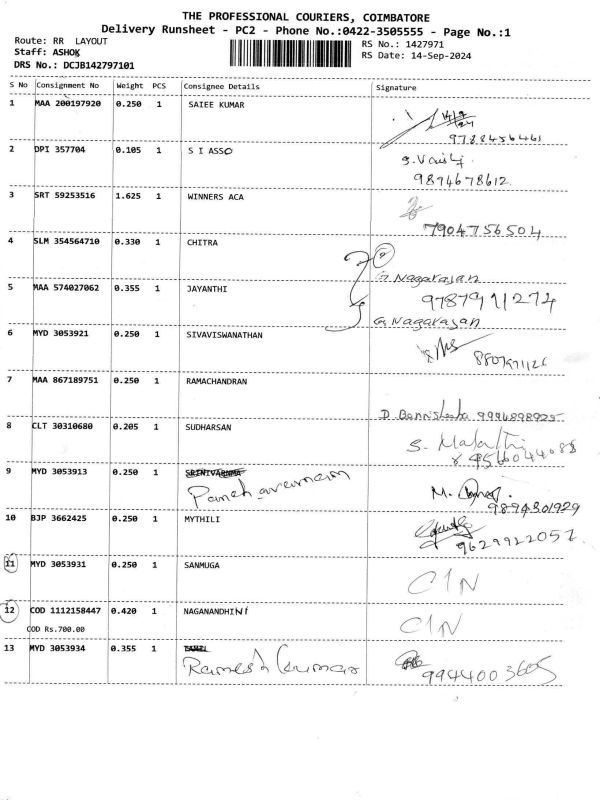 THE PROFESSIONAL COURIERS, COIMBATORE
Delivery Runsheet - PC2 - Phone No.:0422-3505555 - Page No.:1
Route: RR LAYOUT
Staff: ASHOK
DRS No.: DCJB142797101
RS No.: 1427971
RS Date: 14-Sep-2024
S No Consignment No Weight PCS Consignee Details Signature
1 MAA 200197920 0.250 1 SAIEE KUMAR
9788456461
2 DPI 357704 0.105 1 S I ASSO
9894678612
3 SRT 59253516 1.625 1 WINNERS ACA
7904756504
4 SLM 354564710 0.330 1 CHITRA
G. Nagarajan
5 MAA 574027062 0.355 1 JAYANTHI
9787911274
G. Nagarajan
6 MYD 3053921 0.250 1 SIVAVISWANATHAN
7 MAA 867189751 0.250 1 RAMACHANDRAN
8 CLT 30310680 0.205 1 SUDHARSAN
9566044088
9 MYD 3053913 0.250 1
M.
9894301929
10 BJP 3662425 0.250 1 MYTHILI
9629922052
11 MYD 3053931 0.250 1 SANMUGA
C/N
12 COD 1112158447 0.420 1 NAGANANDHINI
C/N
COD Rs.700.00
13 MYD 3053934 0.355 1
Ramesh Kumar
9944003605